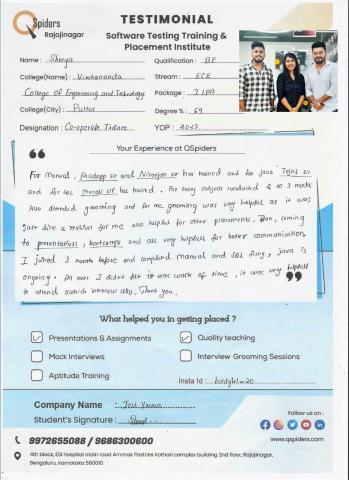 QSpiders
Rajajinagar
TESTIMONIAL
Software Testing Training &
Placement Institute
Name : Shreya
Qualification : BE
College(Name) : Vivekananda
Stream : ECE
College Of Engineering and Technology
Package : 3 LPA
College(City) : Puttur
Degree % : 69
Designation : Co-operate Trainee
YOP : 2023
Your Experience at QSpiders
For manual, Pradeep sir and Niranjan sir has trained and for java Tejas sir
and for SQL sir has trained. For every subject conducted 2 to 3 mocks
Also attended grooming and for me grooming was very helpful as it was
just like a revision for me also helpful for other placements. Then, coming
to presentation, bootcamps and all very helpful for better communication.
I joined 3 months before and completed manual and SQL Java is
ongoing. At over I didn't felt to was waste of time, it was very helpful
to attend outside interview also. Thank you.
What helped you in getting placed ?
Presentations & Assignments
Quality teaching
Mock Interviews
Interview Grooming Sessions
Aptitude Training
Insta Id : boldgirl_m20
Company Name : Test Yantra
Student's Signature :
Follow us on :
9972655088 / 9686300600
www.qspiders.com
4th block, ESI hospital main road Ammas Pastries Kothari complex building 2nd floor, Rajajinagar,
Bengaluru, Karnataka 560010